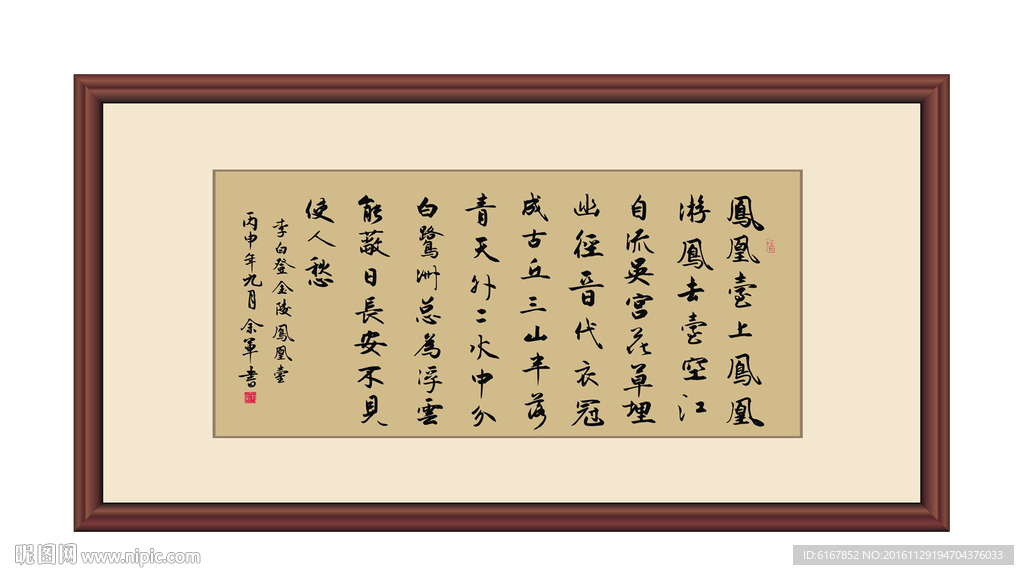 鳳凰臺上鳳凰
游鳳去臺空江
自流吳宮花草埋
幽徑晋代衣冠
成古丘三山半落
青天外二水中分
白鷺洲总為浮雲
能蔽日長安不見
使人愁
李白登金陵鳳凰臺
丙申年九月余軍書
昵图网 www.nipic.com
ID:6167852 NO:20161129194704376033